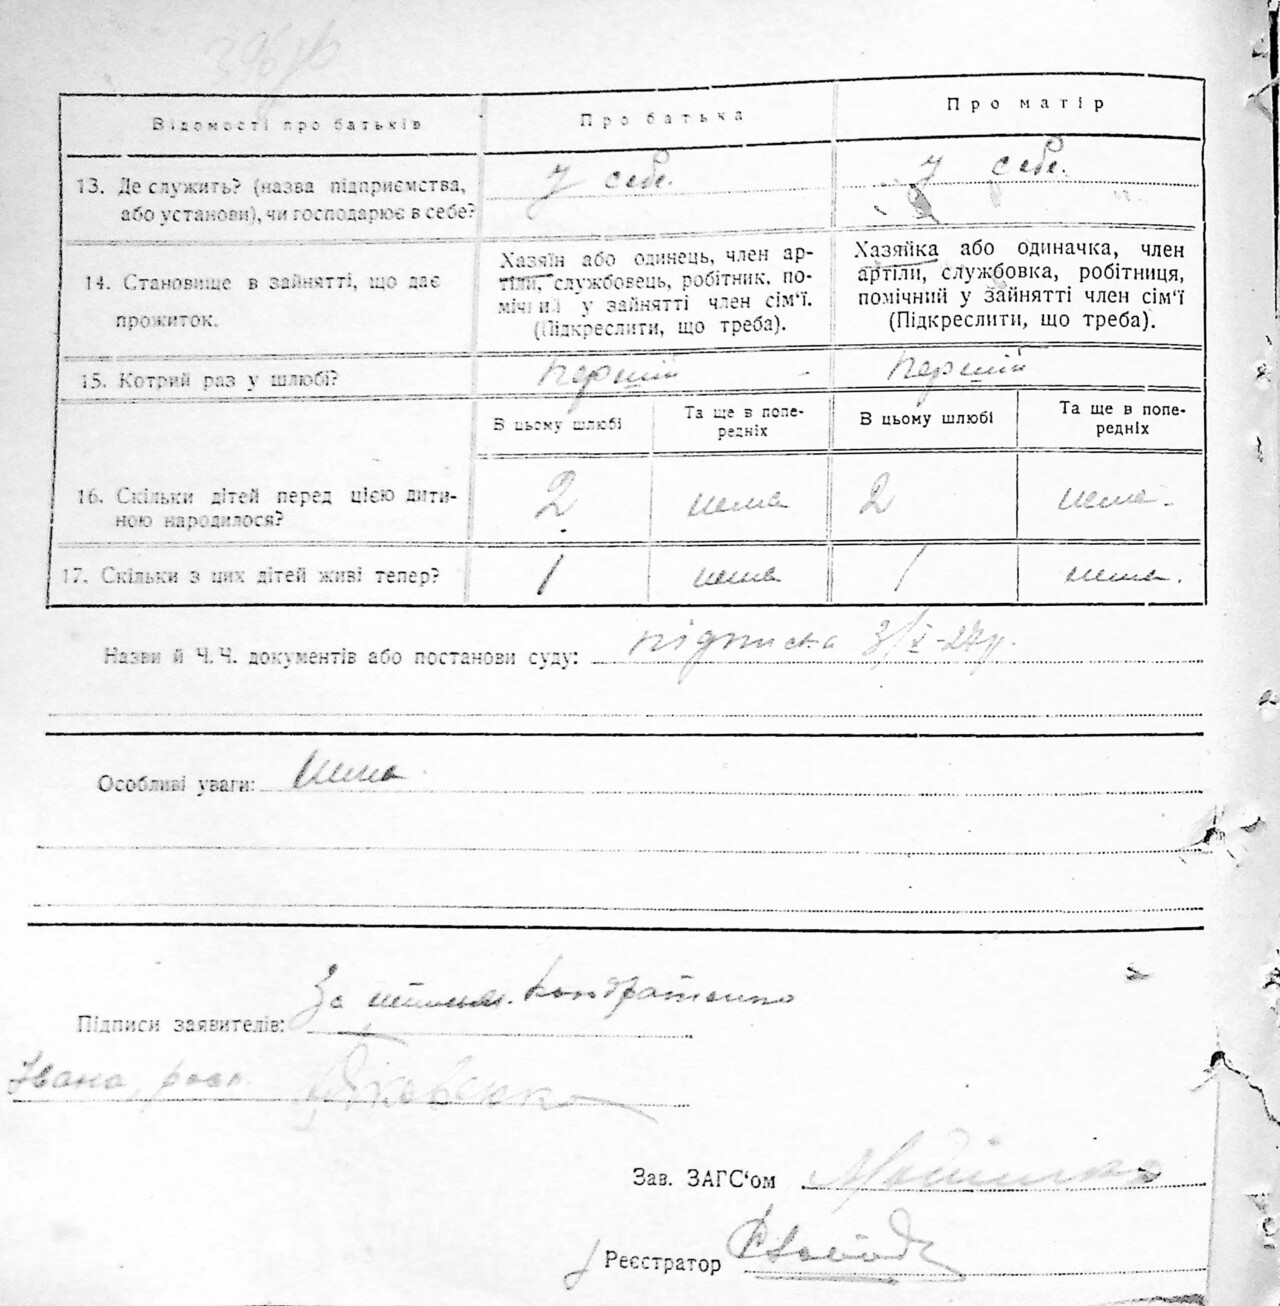 Відомості про батьків Про батька Про матір
13. Де служить? (назва підприємства, або установи), чи господарює в себе?
у себе. у себе.
14. Становище в зайнятті, що дає прожиток.
Хазяїн або одинець, член ар-
тіли, службовець, робітник, по-
мічний у зайнятті член сім'ї.
(Підкреслити, що треба).
Хазяйка або одиначка, член
артіли, службовка, робітниця,
помічний у зайнятті член сім'ї
(Підкреслити, що треба).
15. Котрий раз у шлюбі? перший перший
В цьому шлюбі Та ще в попе-
редніх В цьому шлюбі Та ще в попе-
редніх
16. Скільки дітей перед цією дити-
ною народилося? 2 нема 2 нема.
17. Скільки з цих дітей живі тепер? 1 нема 1 нема.
Назви й Ч.Ч. документів або постанови суду: підписка 3/X-27р.
Особливі уваги: нема
Підписи заявителів: За Кондратенко
Івана, розп.
Зав. ЗАГС'ом
Реєстратор